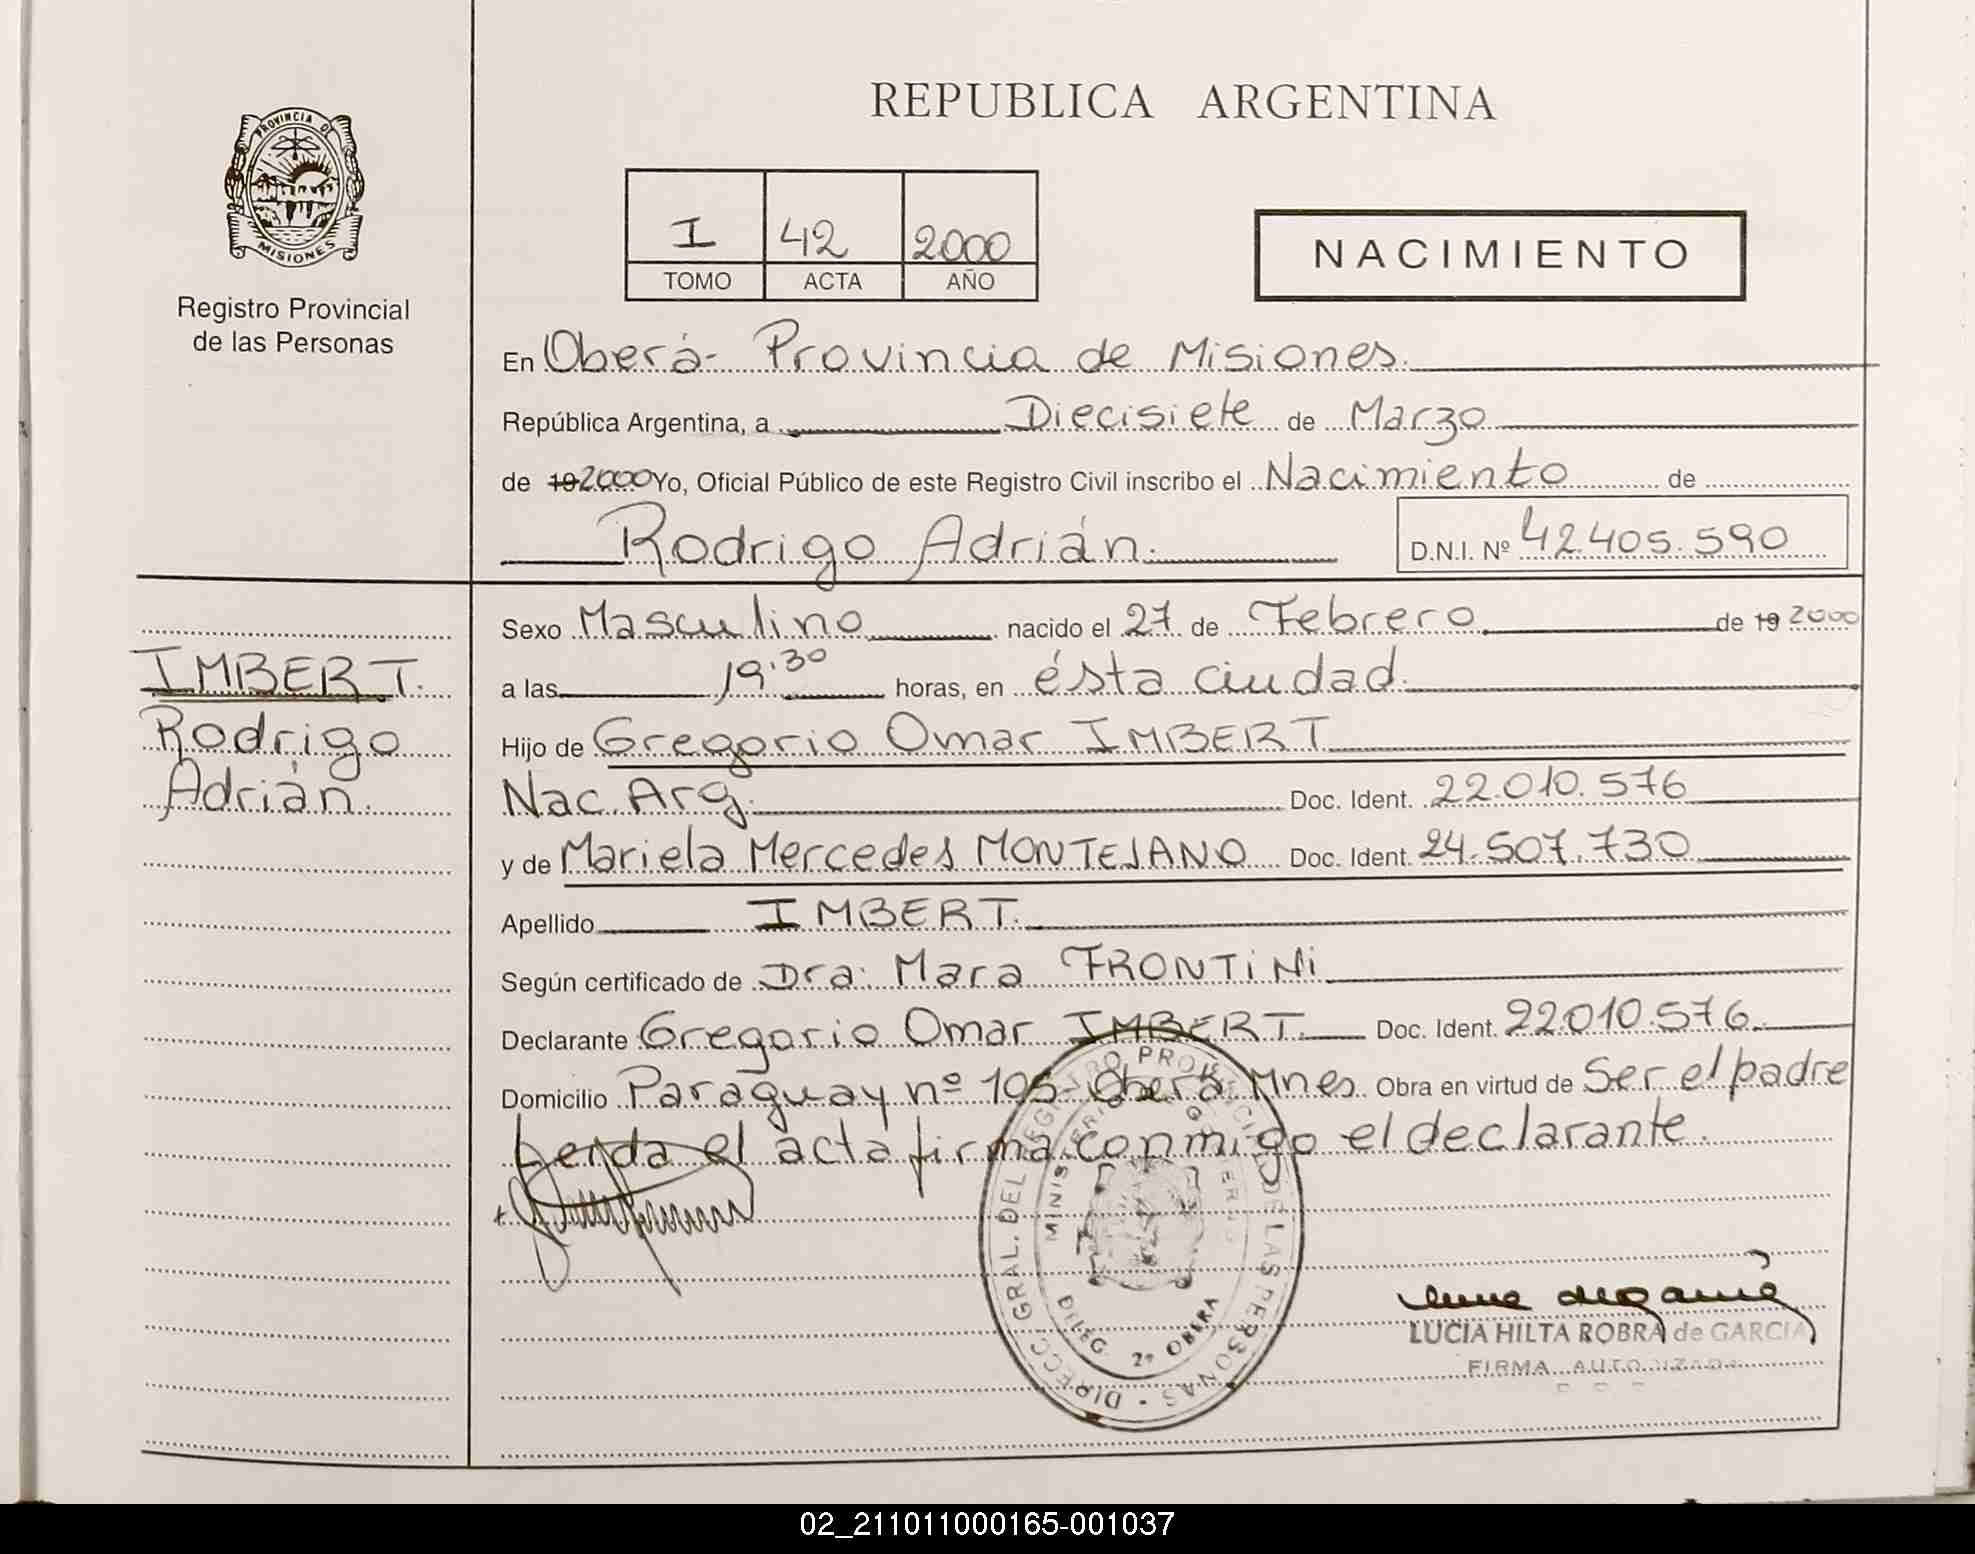 REPUBLICA ARGENTINA
PROVINCIA DE
MISIONES
Registro Provincial
de las Personas
I 42 2000
TOMO ACTA AÑO
NACIMIENTO
En Oberá- Provincia de Misiones.
República Argentina, a Diecisiete de Marzo
de 19 2000 Yo, Oficial Público de este Registro Civil inscribo el Nacimiento de
Rodrigo Adrián. D.N.I. Nº 42.405.590
IMBERT.
Rodrigo
Adrián.
Sexo Masculino nacido el 27 de Febrero de 19 2000
a las 19:30 horas, en ésta ciudad.
Hijo de Gregorio Omar IMBERT
Nac. Arg. Doc. Ident. 22.010.576
y de Mariela Mercedes MONTEJANO Doc. Ident. 24.507.730
Apellido IMBERT.
Según certificado de Dra: Mara FRONTiNi
Declarante Gregorio Omar IMBERT. Doc. Ident. 22.010.576.
Domicilio Paraguay nº 105- Oberá Mnes. Obra en virtud de Ser el padre
Leida el acta firma conmigo el declarante.
DIRECC. GRAL. DEL REGISTRO PROVINCIAL DE LAS PERSONAS
MINISTERIO DE GOBIERNO
DELEG. 2ª OBERA
LUCIA HILTA ROBRA de GARCIA
FIRMA AUTORIZADA
02_211011000165-001037